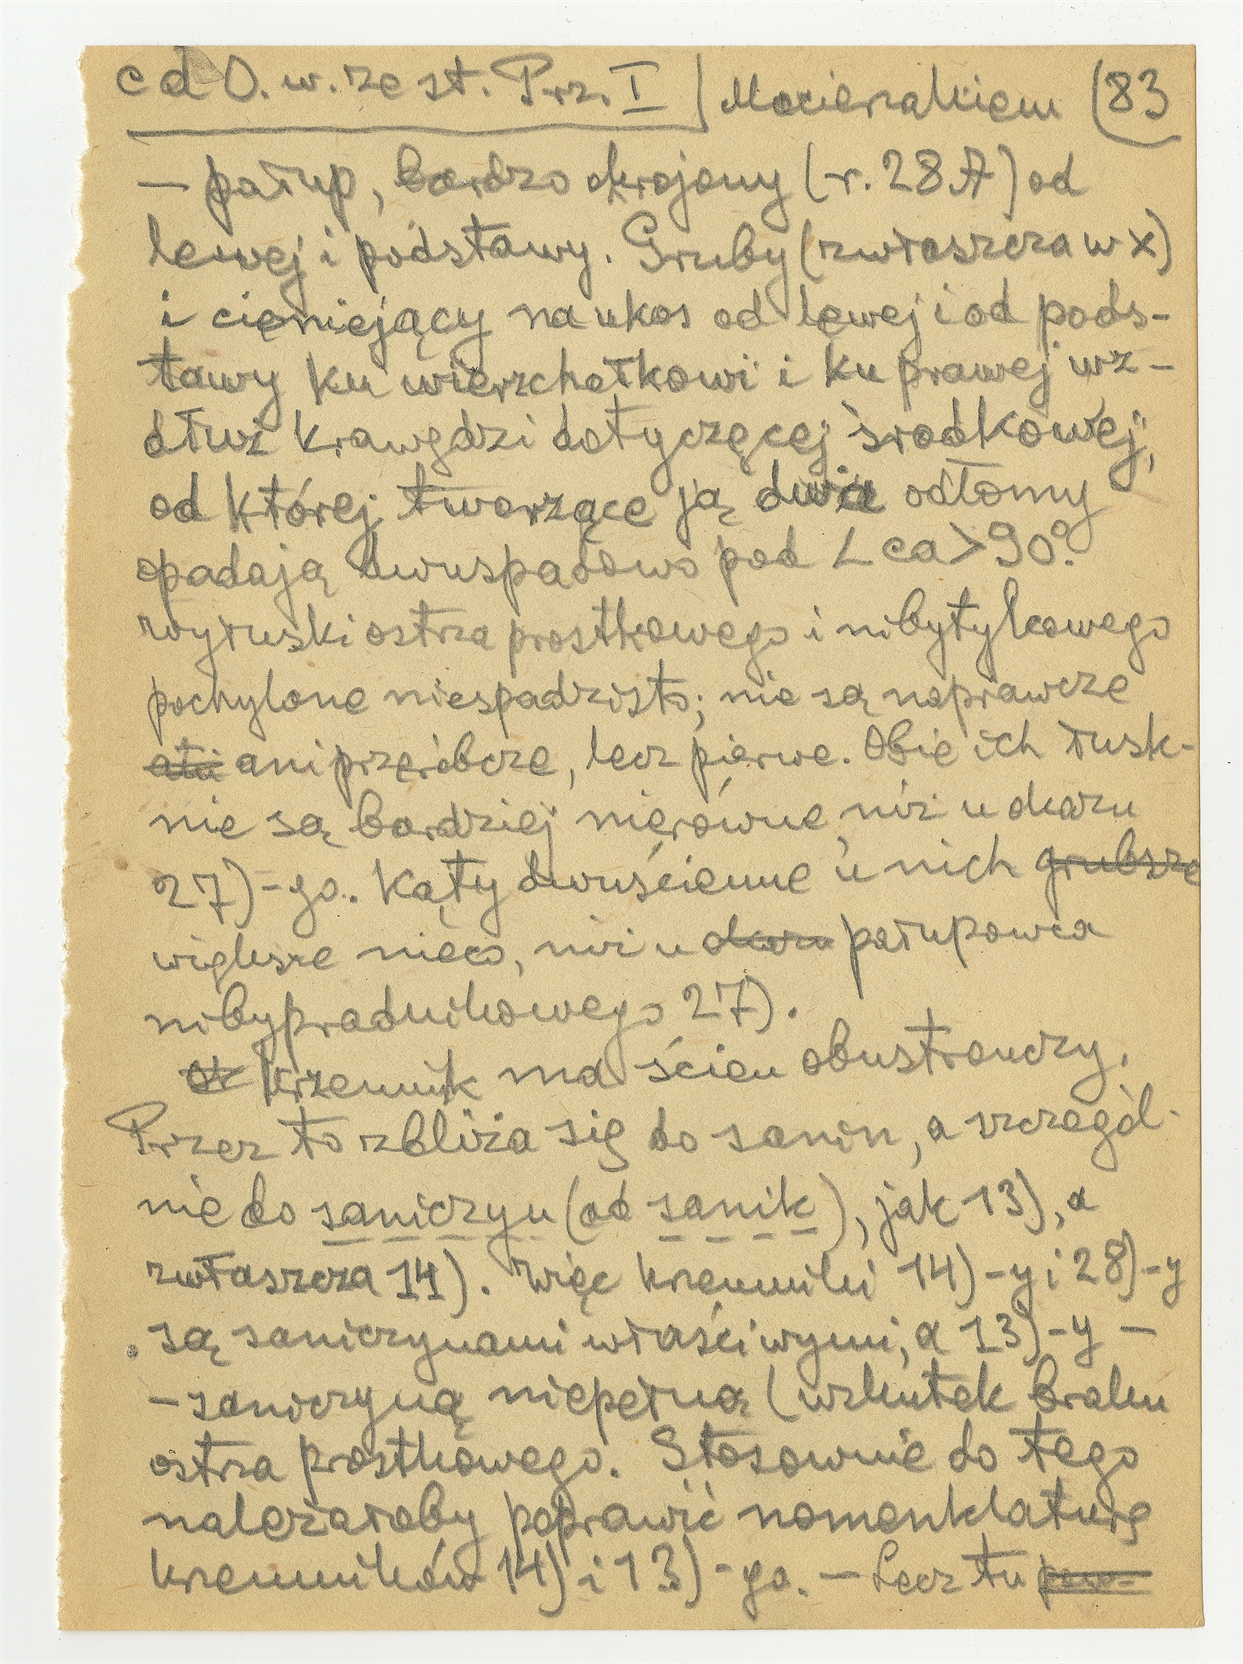 cd O. w. ze st. Prz. I | Macierzakiem (83
— pałup, bardzo okrojony (r. 28 A) od
lewej i podstawy. Gruby (zwłaszcza w x)
i cieniejący na ukos od lewej i od pods-
tawy ku wierzchołkowi i ku prawej wz-
dłuż krawędzi dotyczącej środkowej,
od której tworzące ją dwa odłomy
opadają dwuspadowo pod ∠ ca > 90°.
Wyłuski ostrza prostkowego i nibytylcowego
pochylone niespadzisto; nie są naprawcze
ani przeróbcze, lecz pierwe. Obie ich łusk-
nie są bardziej nierówne niż u okazu
27)-go. Kąty dwuścienne u nich grubsze
większe nieco, niż u okazu pałupowca
nibypradnikowego 27).
krzemnik ma ścien obustronczy.
Przez to zbliża się do sanin, a szczegól-
nie do saniczyn (od sanik), jak 13), a
zwłaszcza 14). Więc krzemniki 14)-y i 28)-y
są saniczynami właściwymi, a 13)-y —
— saniczyną niepełną (wskutek braku
ostrza prostkowego. Stosownie do tego
należałoby poprawić nomenklaturę
krzemników 14) i 13)-go. — Lecz tu